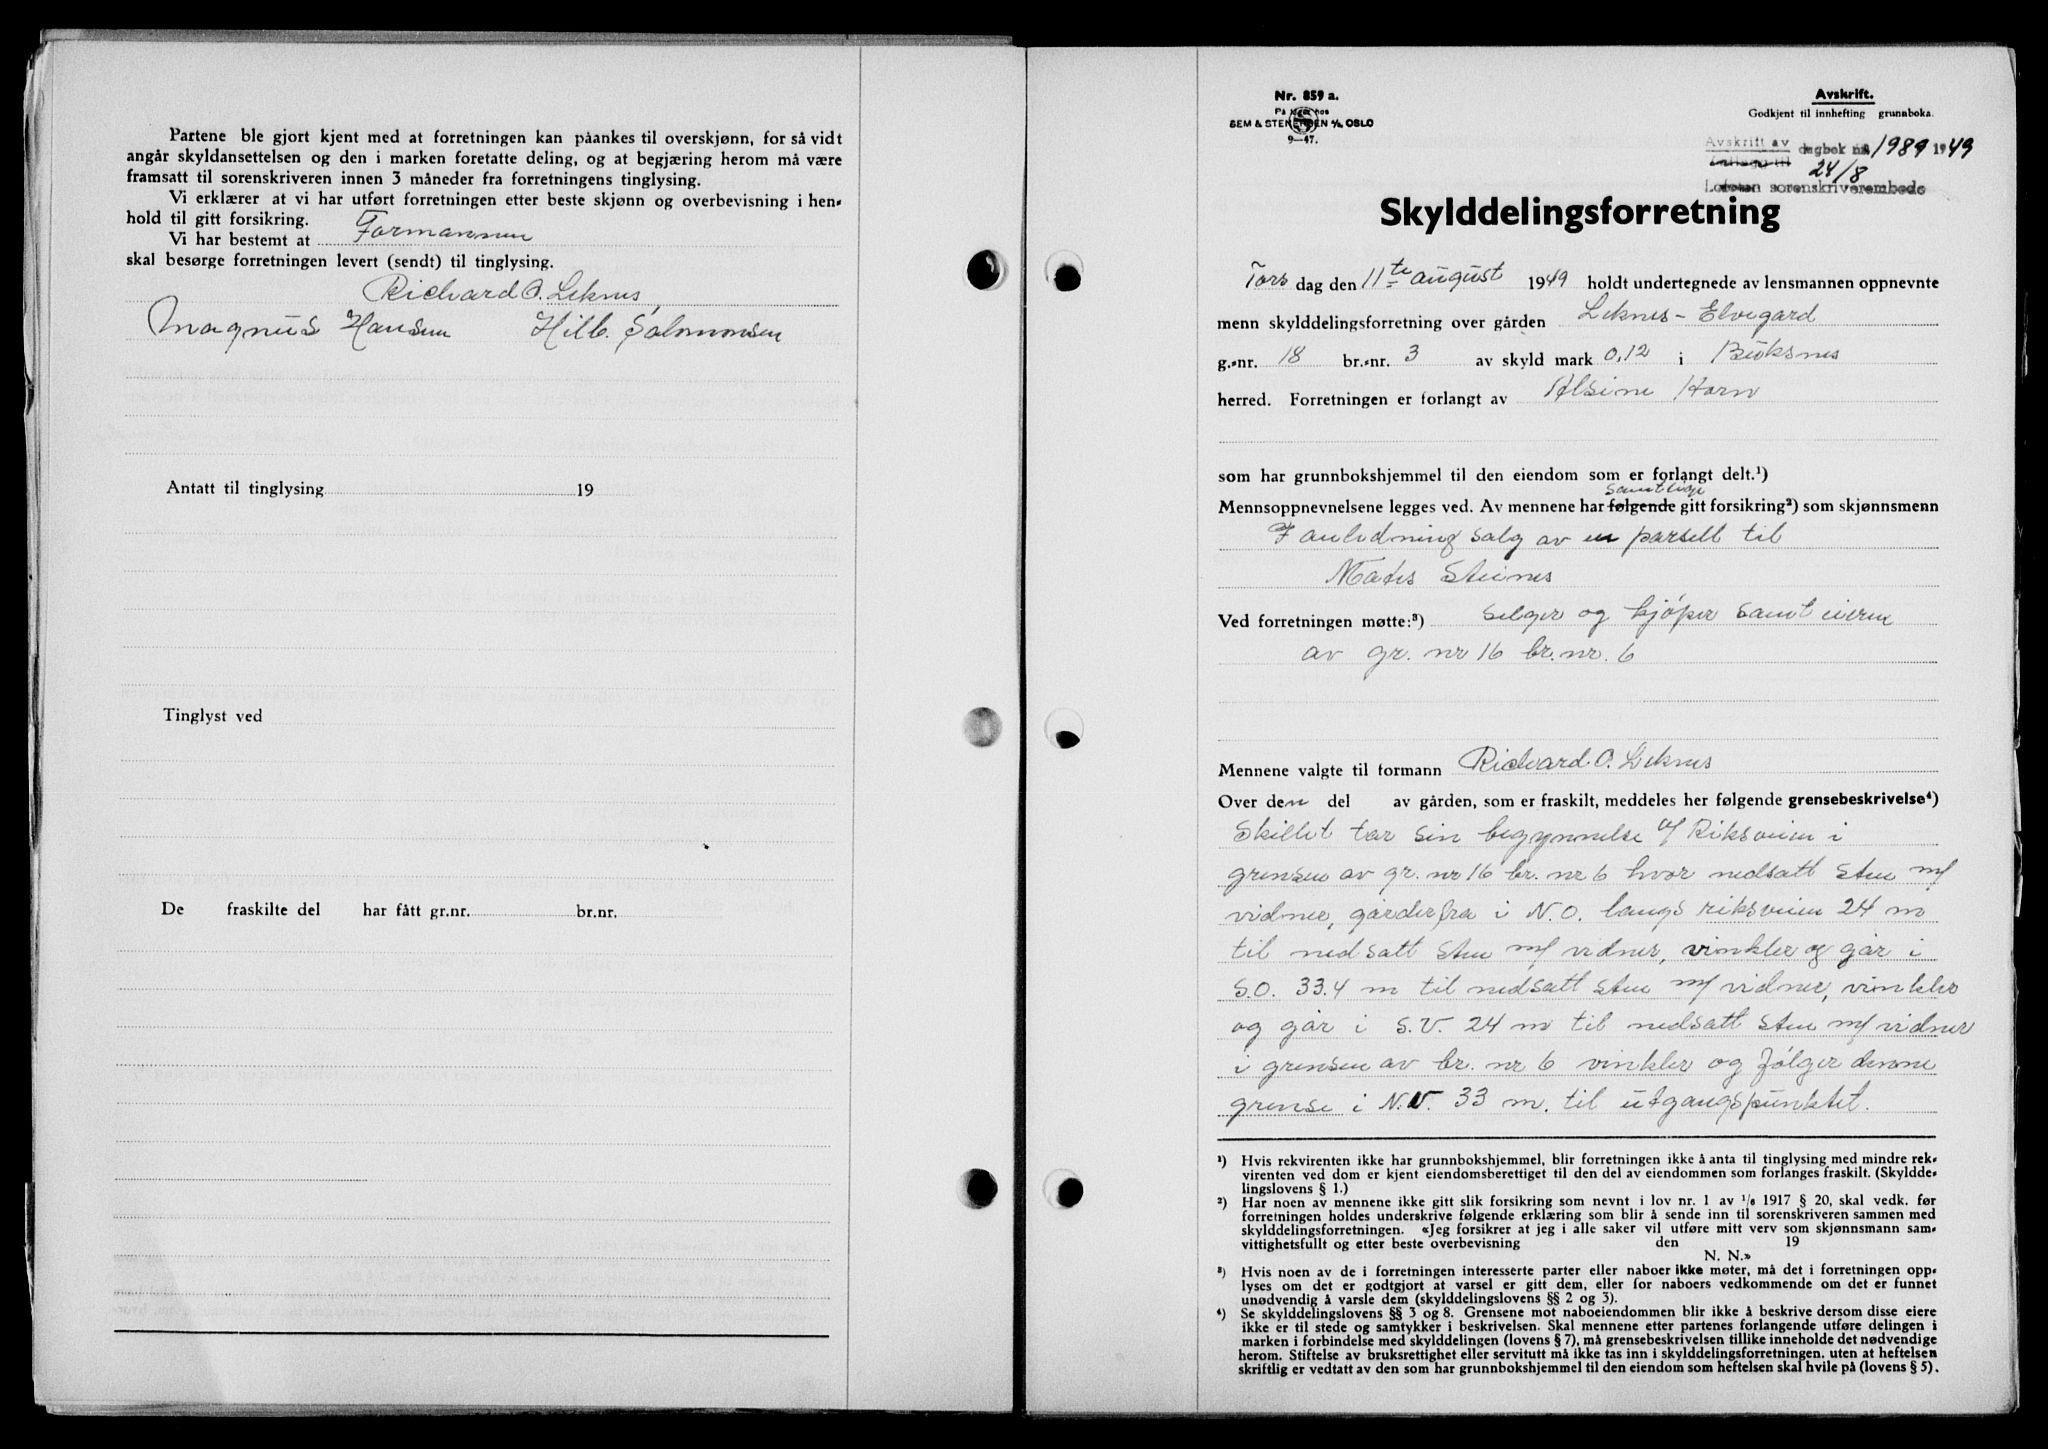 Partene ble gjort kjent med at forretningen kan påankes til overskjønn, for så vidt
angår skyldansettelsen og den i marken foretatte deling, og at begjæring herom må være
framsatt til sorenskriveren innen 3 måneder fra forretningens tinglysing.
Vi erklærer at vi har utført forretningen etter beste skjønn og overbevisning i hen-
hold til gitt forsikring.
Vi har bestemt at Formannen
skal besørge forretningen levert (sendt) til tinglysing.
Richard O. Leknes,
Magnus Hansen Hilb. Salomonsen
Antatt til tinglysing 19
Tinglyst ved
De fraskilte del har fått gr.nr. br.nr.
Nr. 859 a.
På lager hos
SEM & STENERSEN A/S OSLO
9—47.
Avskrift.
Godkjent til innhefting grunnboka.
Avskrift av dagbok nr. 1989 1949
24/8
Lofoten sorenskriverembede
Skylddelingsforretning
Torsdag den 11te august 1949 holdt undertegnede av lensmannen oppnevnte
menn skylddelingsforretning over gården Leknes - Elvegard
g.-nr. 18 br.-nr. 3 av skyld mark 0,12 i Buksnes
herred. Forretningen er forlangt av Alsine Horn
som har grunnbokshjemmel til den eiendom som er forlangt delt.¹)
samtlige
Mennsoppnevnelsene legges ved. Av mennene har følgende gitt forsikring²) som skjønnsmenn
I anledning salg av en parsell til
Steines
Ved forretningen møtte:³) selger og kjøper samt eieren
av gr. nr 16 br. nr. 6
Mennene valgte til formann Richard O. Leknes
Over den del av gården, som er fraskilt, meddeles her følgende grensebeskrivelse⁴)
Skillet tar sin begynnelse v/ Riksveien i
grensen av gr. nr 16 br. nr 6 hvor nedsatt sten m/
vidner, går derfra i N.O. langs riksveien 24 m
til nedsatt sten m/ vidner, vinkler og går i
S.O. 33.4 m til nedsatt sten m/ vidner, vinkler
og går i S.V. 24 m til nedsatt sten m/ vidner
i grensen av br. nr 6 vinkler og følger denne
grense i N.V. 33 m. til utgangspunktet.
¹) Hvis rekvirenten ikke har grunnbokshjemmel, blir forretningen ikke å anta til tinglysing med mindre rek-
virenten ved dom er kjent eiendomsberettiget til den del av eiendommen som forlanges fraskilt. (Skyldde-
lingslovens § 1.)
²) Har noen av mennene ikke gitt slik forsikring som nevnt i lov nr. 1 av 1/6 1917 § 20, skal vedk. før
forretningen holdes underskrive følgende erklæring som blir å sende inn til sorenskriveren sammen med
skylddelingsforretningen. «Jeg forsikrer at jeg i alle saker vil utføre mitt verv som skjønnsmann sam-
vittighetsfullt og etter beste overbevisning den 19
N. N.»
³) Hvis noen av de i forretningen interesserte parter eller naboer ikke møter, må det i forretningen opp-
lyses om det er godtgjort at varsel er gitt dem, eller for naboers vedkommende om det er funnet
unødvendig å varsle dem (skylddelingslovens §§ 2 og 3).
⁴) Se skylddelingslovens §§ 3 og 8. Grensene mot naboeiendommen blir ikke å beskrive dersom disse eiere
ikke er til stede og samtykker i beskrivelsen. Skal mennene etter partenes forlangende utføre delingen i
marken i forbindelse med skylddelingen (lovens § 7), må grensebeskrivelsen tillike inneholde det nødvendige
herom. Stiftelse av bruksrettighet eller servitutt må ikke tas inn i skylddelingsforretningen. uten at heftelsen
skriftlig er vedtatt av den som har grunnbokshjemmel til den eiendom som heftelsen skal hvile på (lovens § 5).